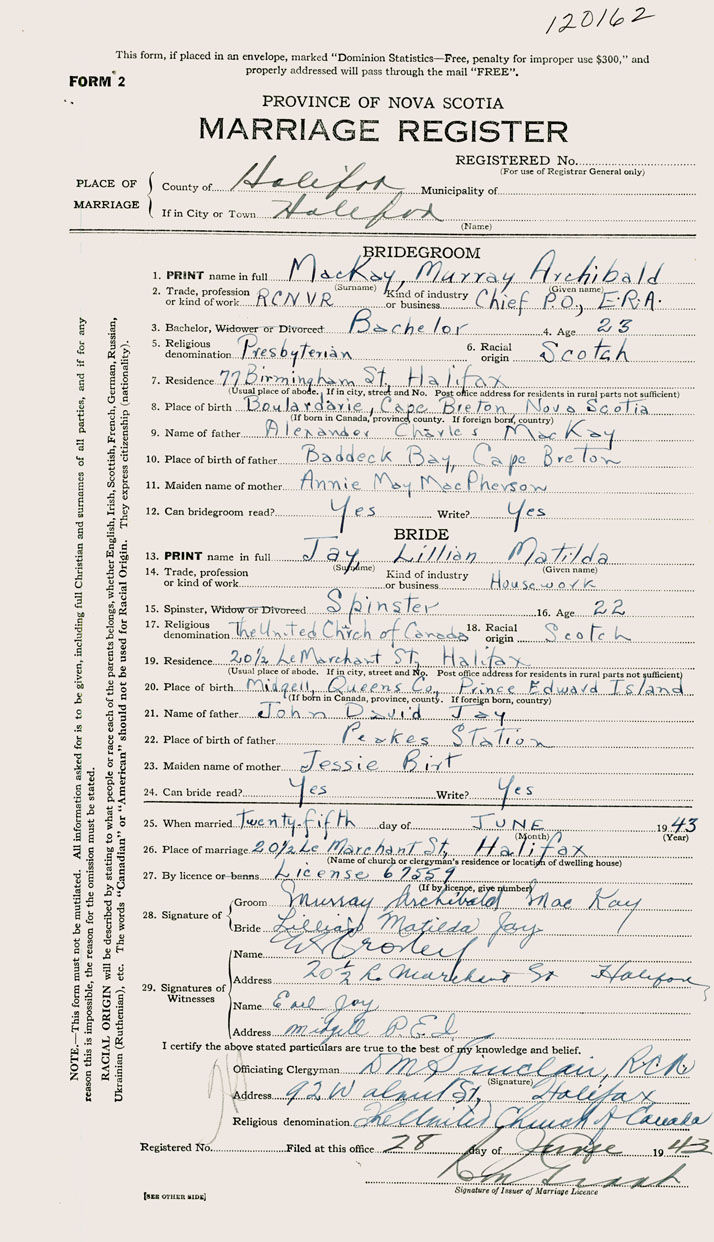 120162
This form, if placed in an envelope, marked "Dominion Statistics—Free, penalty for improper use $300," and
properly addressed will pass through the mail "FREE".
FORM 2
PROVINCE OF NOVA SCOTIA
MARRIAGE REGISTER
REGISTERED No.
(For use of Registrar General only)
PLACE OF MARRIAGE
County of Halifax Municipality of
If in City or Town Halifax
(Name)
BRIDEGROOM
1. PRINT name in full MacKay, Murray Archibald
(Surname) (Given name)
2. Trade, profession or kind of work RCNVR Kind of industry or business Chief P.O., E.R.A.
3. Bachelor, Widower or Divorced Bachelor 4. Age 23
5. Religious denomination Presbyterian 6. Racial origin Scotch
7. Residence 77 Birmingham St, Halifax
(Usual place of abode. If in city, street and No. Post office address for residents in rural parts not sufficient)
8. Place of birth Boulardarie, Cape Breton Nova Scotia
(If born in Canada, province, county. If foreign born, country)
9. Name of father Alexander Charles MacKay
10. Place of birth of father Baddeck Bay, Cape Breton
11. Maiden name of mother Annie May MacPherson
12. Can bridegroom read? Yes Write? Yes
BRIDE
13. PRINT name in full Jay, Lillian Matilda
(Surname) (Given name)
14. Trade, profession or kind of work Kind of industry or business Housework
15. Spinster, Widow or Divorced Spinster 16. Age 22
17. Religious denomination The United Chrch of Canada 18. Racial origin Scotch
19. Residence 20½ LeMarchant St, Halifax
(Usual place of abode. If in city, street and No. Post office address for residents in rural parts not sufficient)
20. Place of birth Midgell, Queens Co, Prince Edward Island
(If born in Canada, province, county. If foreign born, country)
21. Name of father John David Jay
22. Place of birth of father Peakes Station
23. Maiden name of mother Jessie Birt
24. Can bride read? Yes Write? Yes
25. When married Twenty-fifth day of JUNE 1943
(Month) (Year)
26. Place of marriage 20½ Le Marchant St, Halifax
(Name of church or clergyman's residence or location of dwelling house)
27. By licence or banns License 67559
(If by licence, give number)
28. Signature of Groom Murray Archibald Mac Kay
Bride Lillian Matilda Jay
29. Signatures of Witnesses
Name
Address 20½ Le Marchant St Halifax
Name Earl Jay
Address Midgell P.E.I.
I certify the above stated particulars are true to the best of my knowledge and belief.
Officiating Clergyman D M Sinclair, RCN
(Signature)
Address 92 Walnut St, Halifax
Religious denomination The United Church of Canada
Registered No. Filed at this office 28 day of June 1943
Signature of Issuer of Marriage Licence
[SEE OTHER SIDE]
NOTE.—This form must not be mutilated. All information asked for is to be given, including full Christian and surnames of all parties, and if for any
reason this is impossible, the reason for the omission must be stated.
RACIAL ORIGIN will be described by stating to what people or race each of the parents belongs, whether English, Irish, Scottish, French, German, Russian,
Ukrainian (Ruthenian), etc. The words "Canadian" or "American" should not be used for Racial Origin. They express citizenship (nationality).